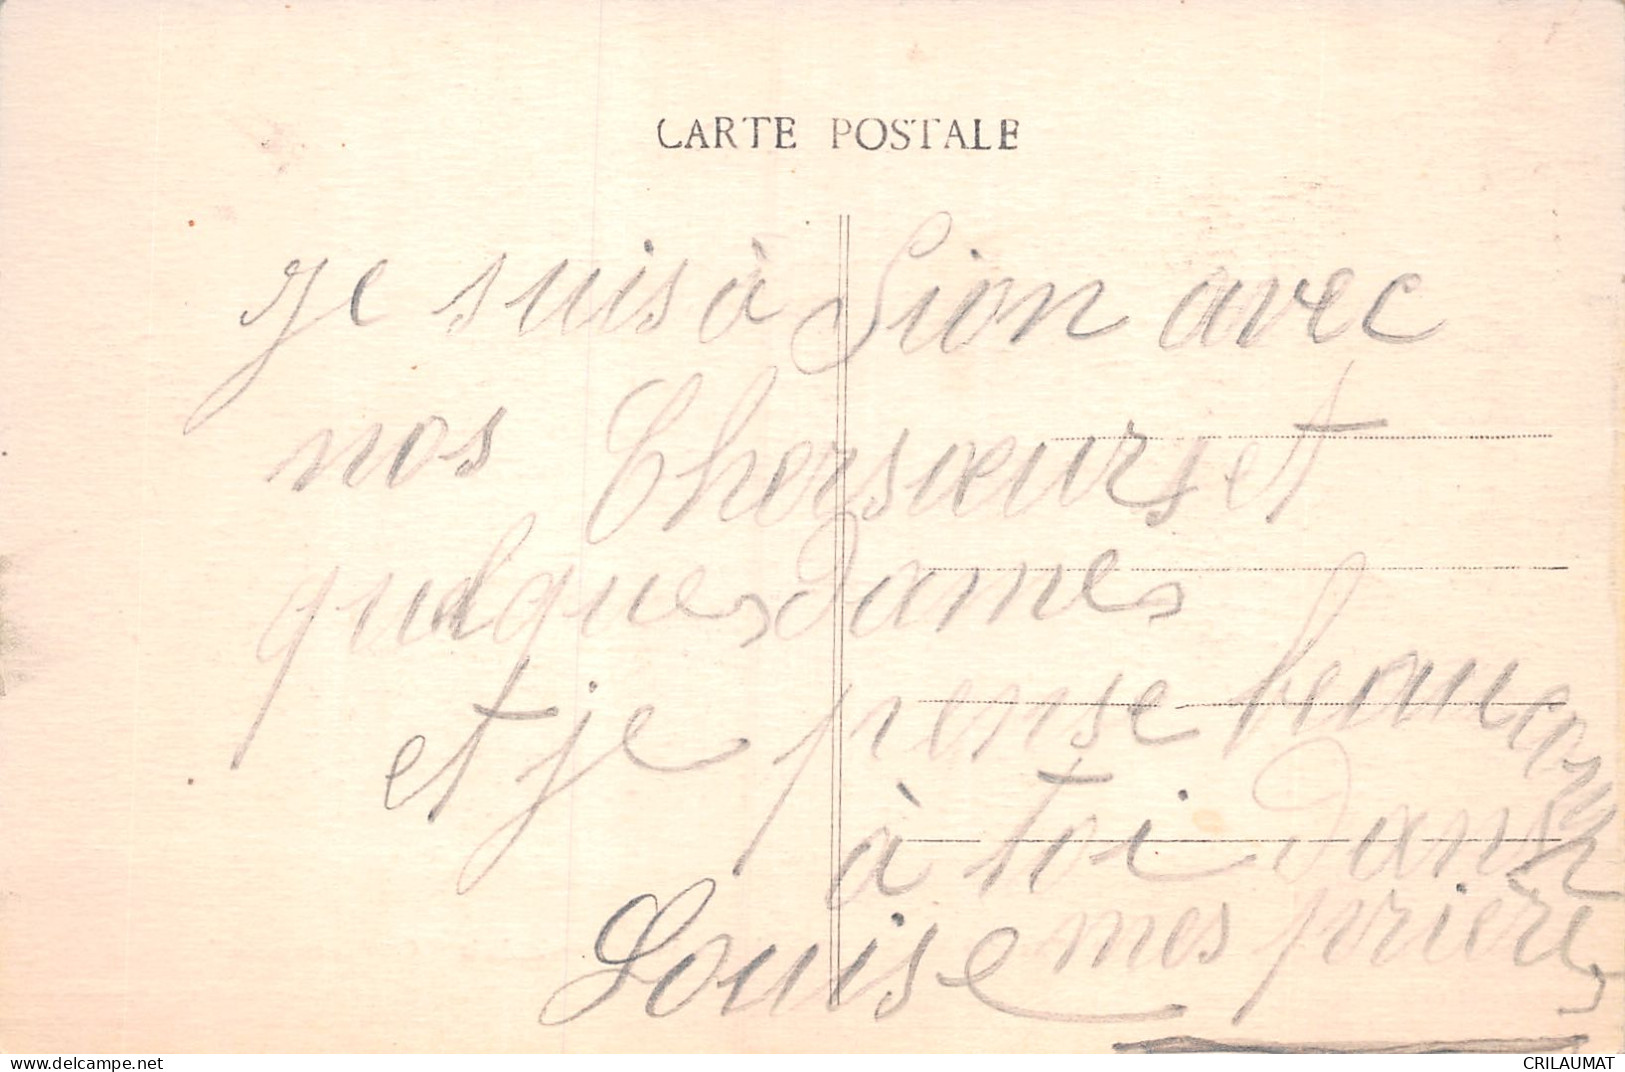 CARTE POSTALE
Je suis à Sion avec
nos Cher sœurs et
quelques dames
et je pense beaucoup
à toi dans
mes prières
Louise
delcampe.net
CRILAUMAT